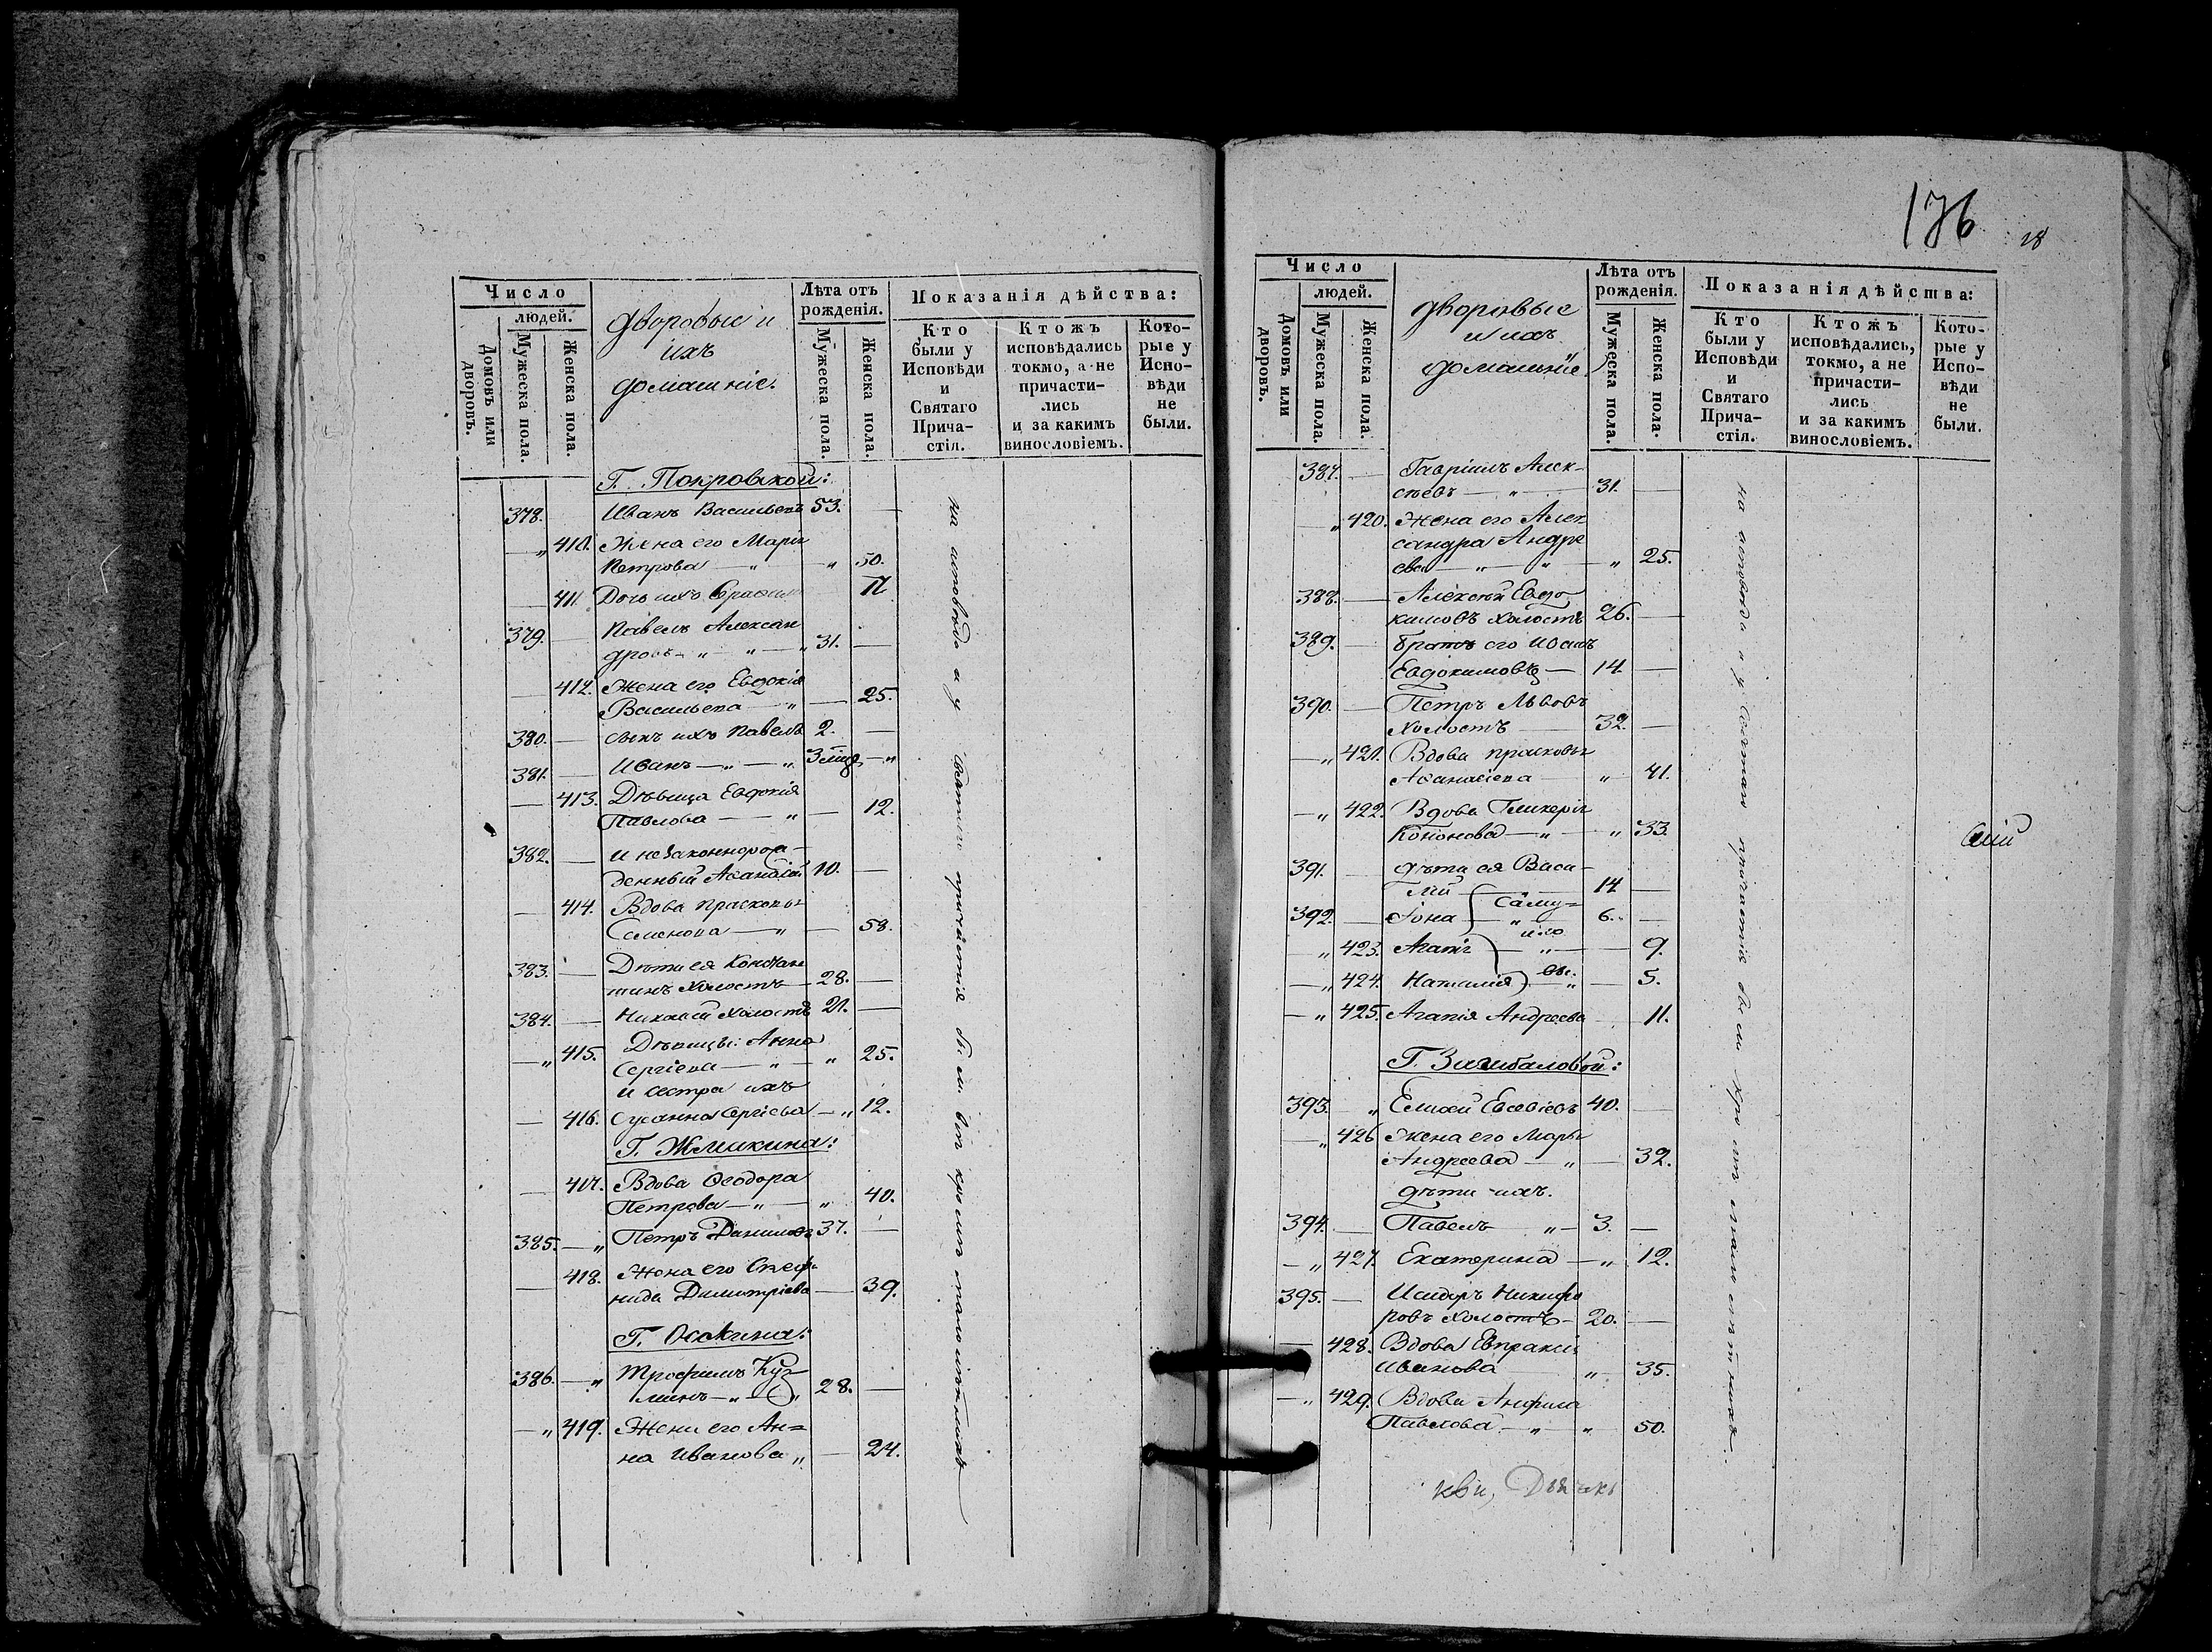 Число
людей.
Домовъ или дворовъ.
Мужеска пола.
Женска пола.
дворовые и
ихъ
домашніе.
Лѣта отъ рожденія.
Мужеска пола.
Женска пола.
Показанія дѣйства:
Кто были у Исповѣди и Святаго Прича- стія.
Ктожъ исповѣдались токмо, а не причасти- лись и за какимъ винословіемъ.
Кото- рые у Испо- вѣди не были.
Г. Покровской:
378. Иванъ Васильевъ 53. —
— „ 410. Жена его Марія
Петрова — „ — „ 50.
— 411. Дочь ихъ 17
379. — Павелъ Алексан
дровъ — „ — „ — „ 31. —
— 412. Жена его Евдокія
Васильева — „ — 25.
380. — сынъ ихъ Павелъ 2. —
381. — Иванъ — „ — „ 3 мѣс. — „
— 413. Дѣвица Евдокія
Павлова — — „ — 12.
382. — и незаконнорож-
денный Аѳанасій 10. —
— 414. Вдова Прасковья
Семенова — „ — 58.
383. — Дѣти ея Констан
тинъ холостъ — 28. —
384. — Николай холостъ 21. —
— „ 415. Дѣвицы: Анна
Сергіева — „ — „ 25.
и сестра ихъ
— 416. Сусанна Сергіева — „ 12.
Г. Жмакина:
— 417. Вдова Ѳеодора
Петрова — „ — „ 40.
385. — „ Петръ Даниловъ 37. —
— 418. Жена его Степа
нида Димитріева — 39.
Г. Осокина:
386. — „ Трофимъ Куз
минъ — „ — „ 28. —
— „ 419. Жена его Ан=
на Иванова „ — 24.
на исповѣди и у Святаго причастія были всѣ кромѣ малолѣтнихъ
176 18
Число
людей.
Домовъ или дворовъ.
Мужеска пола.
Женска пола.
дворовые
и ихъ
домашніе
Лѣта отъ рожденія.
Мужеска пола.
Женска пола.
Показанія дѣйства:
Кто были у Исповѣди и Святаго Прича- стія.
Ктожъ исповѣдались, токмо, а не причасти- лись и за какимъ винословіемъ.
Кото- рые у Испо- вѣди не были.
387. — Гавріилъ Алек-
сѣевъ — „ — 31. —
— „ 420. Жена его Алек
сандра Андре
ева — „ — „ — „ 25.
388. — Алексѣй Евдо
кимовъ холостъ 26. —
389. — братъ его Иванъ
Евдокимовъ — 14. —
390. — Петръ Львовъ
холостъ — 32. —
— „ 421. Вдова Прасковья
Аѳанасіева — „ 41.
— „ 422. Вдова Гликерія
Кононова — „ — „ 33.
391. — дѣти ея Васи-
лій — Саму= 14 —
392. — Іона — „ — 6. —
„ 423. Агапія — ило „ — — 9.
— „ 424. Наталія — вы. „ — 5.
— „ 425. Агапія Андреева — 11.
393. — „ Елисей Евсевіевъ 40. —
— „ 426 Жена его Марья
Андреева — „ — 32.
дѣти ихъ.
394. — Павелъ „ — 3. —
— „ 427. Екатерина — „ 12.
395. — Исидоръ Никифо
ровъ холостъ — 20. —
— 428. Вдова Евпраксія
Иванова „ 35.
— „ 429. Вдова Анфиса
Павлова — „ — „ 50.
на исповѣди и у Святаго причастія были кромѣ малолѣтнихъ